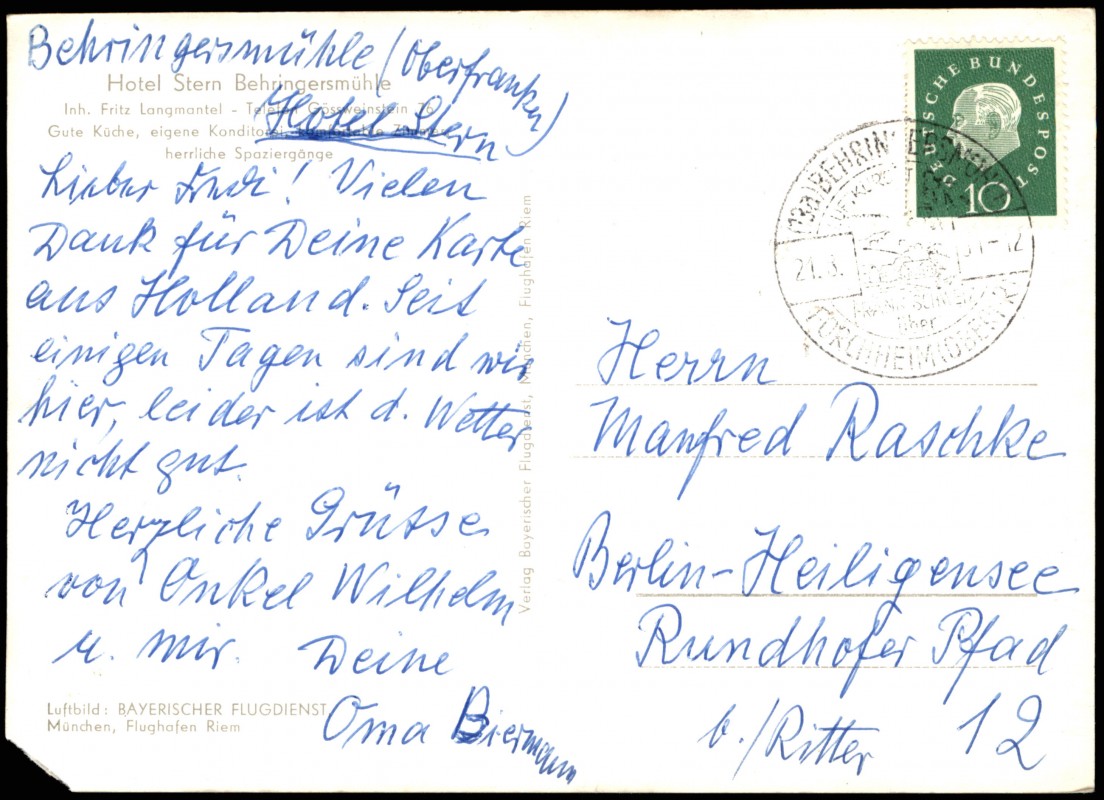 Behringersmühle (Oberfranken)
Hotel Stern Behringersmühle
Inh. Fritz Langmantel - Telefon Gössweinstein 76
Hotel Stern
Gute Küche, eigene Konditorei, komfortable Zimmer
herrliche Spaziergänge
Lieber Andi! Vielen
Dank für Deine Karte
aus Holland. Seit
einigen Tagen sind wir
hier, leider ist d. Wetter
nicht gut.
Herzliche Grüsse
von Onkel Wilhelm
u. mir. Deine
Oma Biermann
Luftbild: BAYERISCHER FLUGDIENST
München, Flughafen Riem
Verlag Bayerischer Flugdienst, München, Flughafen Riem
DEUTSCHE BUNDESPOST
10
(13a) BEHRINGERSMÜHLE
LUFTKURORT
21.3.
-12
FRÄNK. SCHWEIZ
über
FORCHHEIM (OBERFR)
Herrn
Manfred Raschke
Berlin-Heiligensee
Rundhofer Pfad
b./Ritter 12